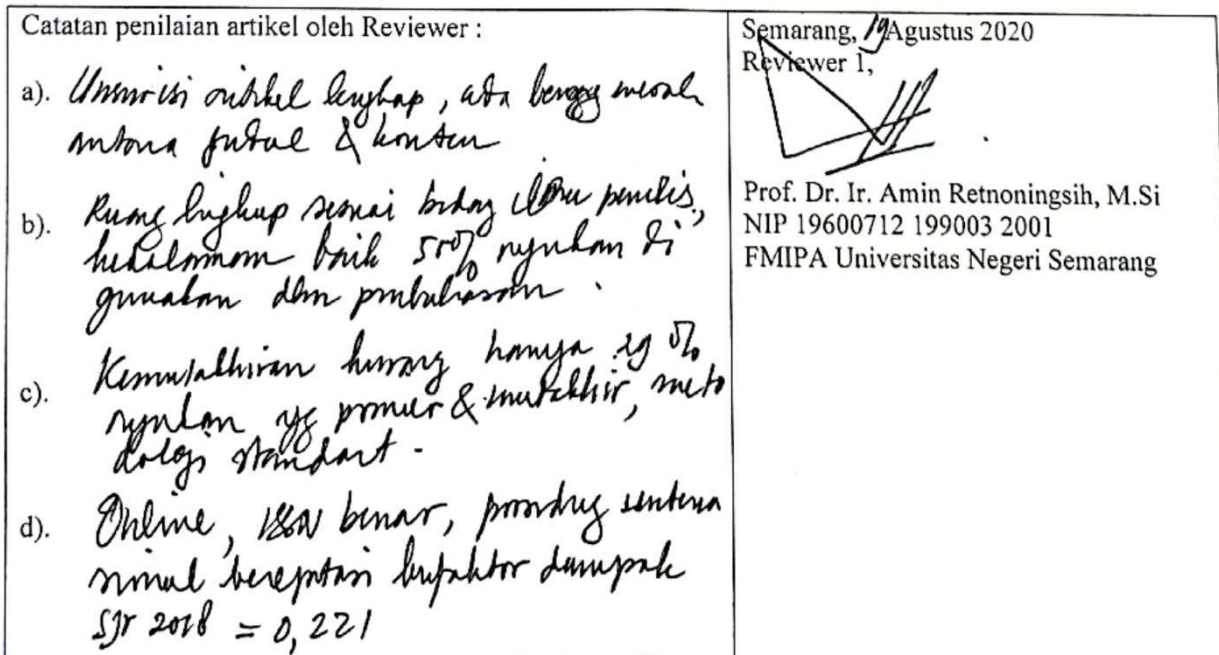 Catatan penilaian artikel oleh Reviewer :
a). Unsur isi artikel lengkap, ada benang merah
antara judul & konten
b). Ruang lingkup sesuai bidang ilmu penulis,
kedalaman baik 50% rujukan di
gunakan dlm pembahasan.
c). Kemutakhiran kurang hanya %
rujukan yg primer & mutakhir, meto
dologi standart.
d). Online, ISSN benar, prosiding
bereputasi berfaktor dampak
SJR 2018 = 0,221
Semarang, 19 Agustus 2020
Reviewer 1,
Prof. Dr. Ir. Amin Retnoningsih, M.Si
NIP 19600712 199003 2001
FMIPA Universitas Negeri Semarang